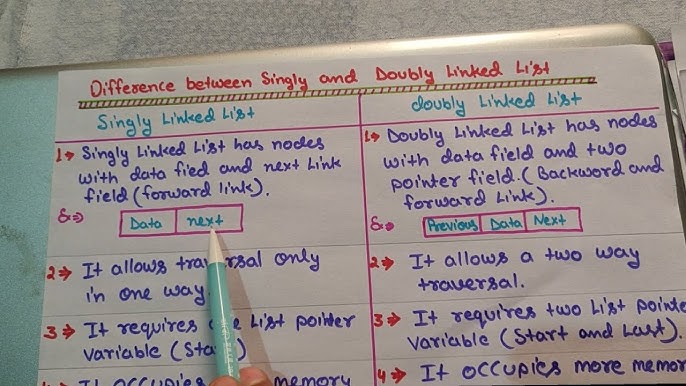 Difference between Singly and Doubly Linked List
Singly Linked List
1→ Singly Linked List has nodes
with data fied and next Link
field (forward link).
Data next
2→ It allows traversal only
in one way
3→ It requires List pointer
variable (
4→ It occup memory
doubly Linked List
1→ Doubly Linked List has nodes
with data field and two
pointer field. (Backword and
forward Link).
Previous Data Next
2→ It allows a two way
traversal.
3→ It requires two List pointer
variable (Start and Last).
4→ It occupies more memory